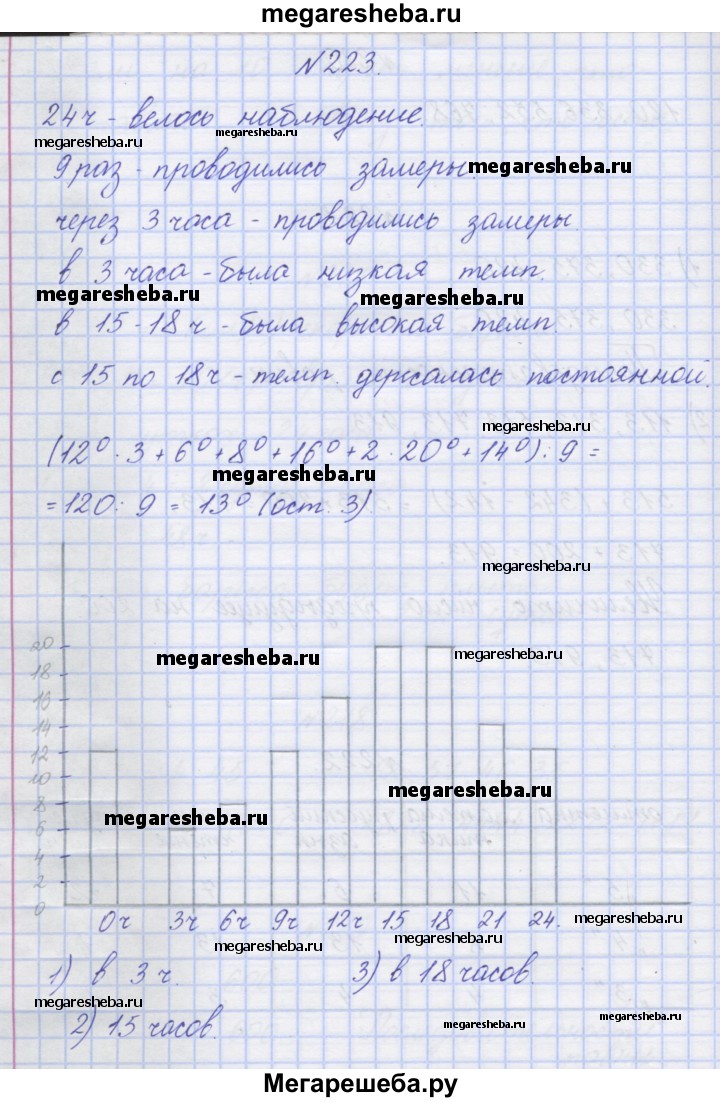 megaresheba.ru
№223.
24ч - велось наблюдение.
megaresheba.ru megaresheba.ru
9 раз - проводились замеры.
megaresheba.ru
через 3 часа - проводились замеры.
в 3 часа - была низкая темп.
megaresheba.ru megaresheba.ru
в 15-18ч - была высокая темп.
с 15 по 18ч - темп. держалась постоянной.
megaresheba.ru
(12° · 3 + 6° + 8° + 16° + 2 · 20° + 14°) : 9 =
megaresheba.ru
= 120 : 9 = 13° (ост. 3)
megaresheba.ru
20
megaresheba.ru megaresheba.ru
18
16
14
12
10
megaresheba.ru
8
megaresheba.ru
6
4
2
0
0ч 3ч 6ч 9ч 12ч 15 18 21 24.
megaresheba.ru megaresheba.ru megaresheba.ru
1) в 3 ч. 3) в 18 часов.
megaresheba.ru megaresheba.ru
2) 15 часов.
megaresheba.ru megaresheba.ru
Мегарешеба.ру